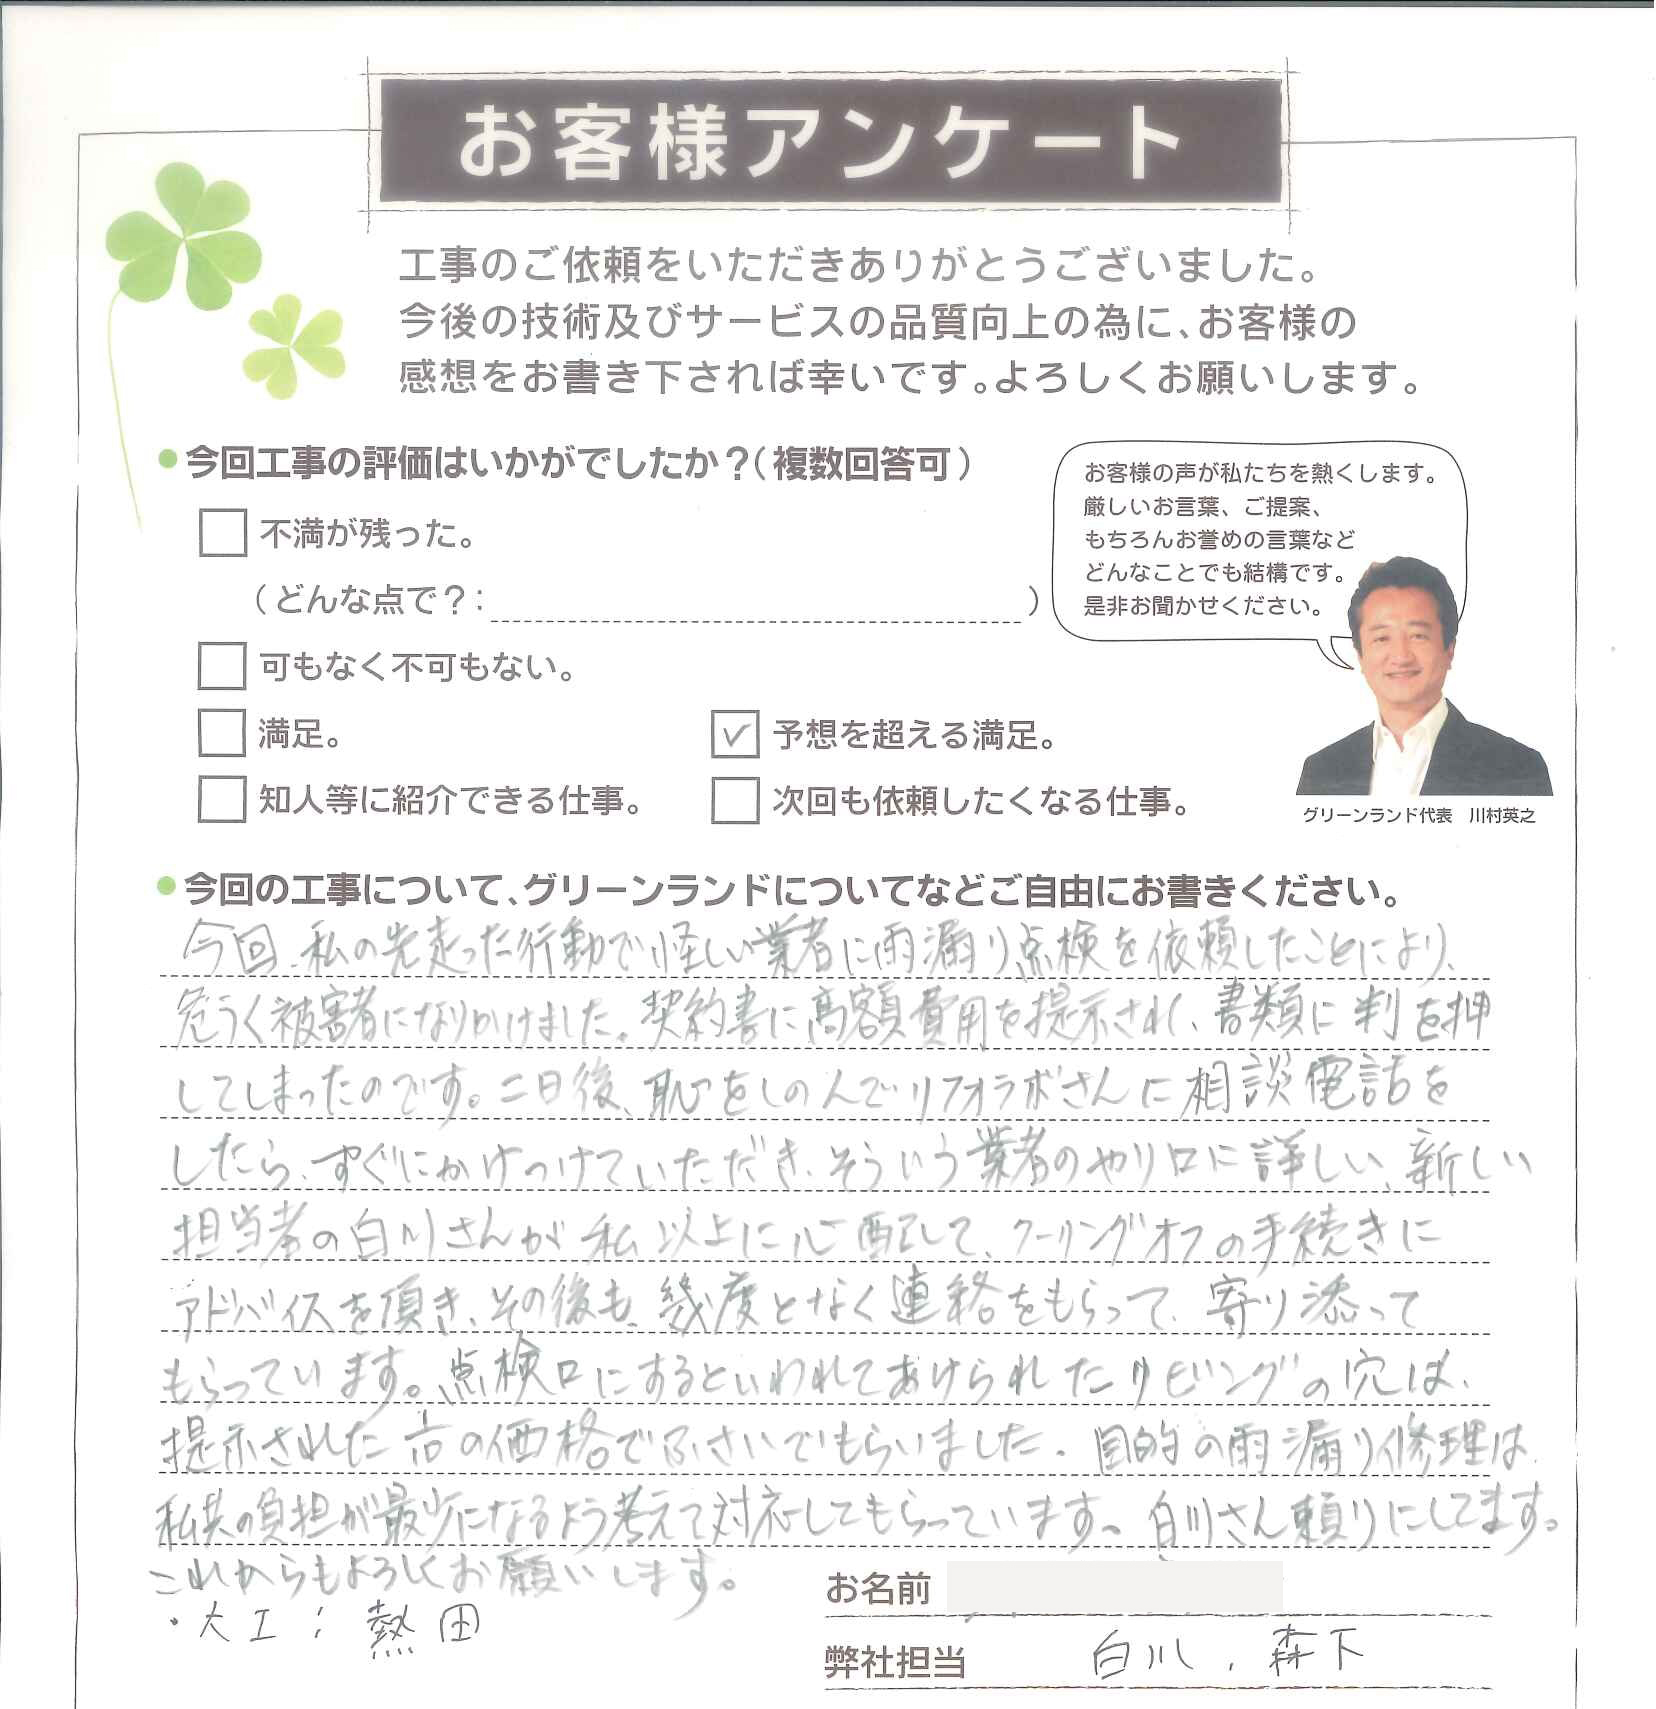 お客様アンケート
工事のご依頼をいただきありがとうございました。
今後の技術及びサービスの品質向上の為に、お客様の
感想をお書き下されば幸いです。よろしくお願いします。
今回工事の評価はいかがでしたか?(複数回答可)
不満が残った。
(どんな点で?: )
可もなく不可もない。
満足。
✓ 予想を超える満足。
知人等に紹介できる仕事。
次回も依頼したくなる仕事。
お客様の声が私たちを熱くします。
厳しいお言葉、ご提案、
もちろんお誉めの言葉など
どんなことでも結構です。
是非お聞かせください。
グリーンランド代表 川村英之
今回の工事について、グリーンランドについてなどご自由にお書きください。
今回、私の先走った行動で怪しい業者に雨漏り点検を依頼したことにより、
危うく被害者になりかけました。契約書に高額費用を提示され、書類に判を押
してしまったのです。二日後、恥をしのんでリフォラボさんに相談電話を
したら、すぐにかけつけていただき、そういう業者のやり口に詳しい、新しい
担当者の白川さんが私以上に心配して、クーリングオフの手続きに
アドバイスを頂き、その後も、幾度となく連絡をもらって、寄り添って
もらっています。点検口にするといわれてあけられたリビングの穴は、
提示された の価格でふさいでもらいました。目的の雨漏り修理は
私共の負担が最少になるよう考えて対応してもらっています。白川さん頼りにしてます。
これからもよろしくお願いします。
・大工:熱田
お名前
弊社担当 白川、森下